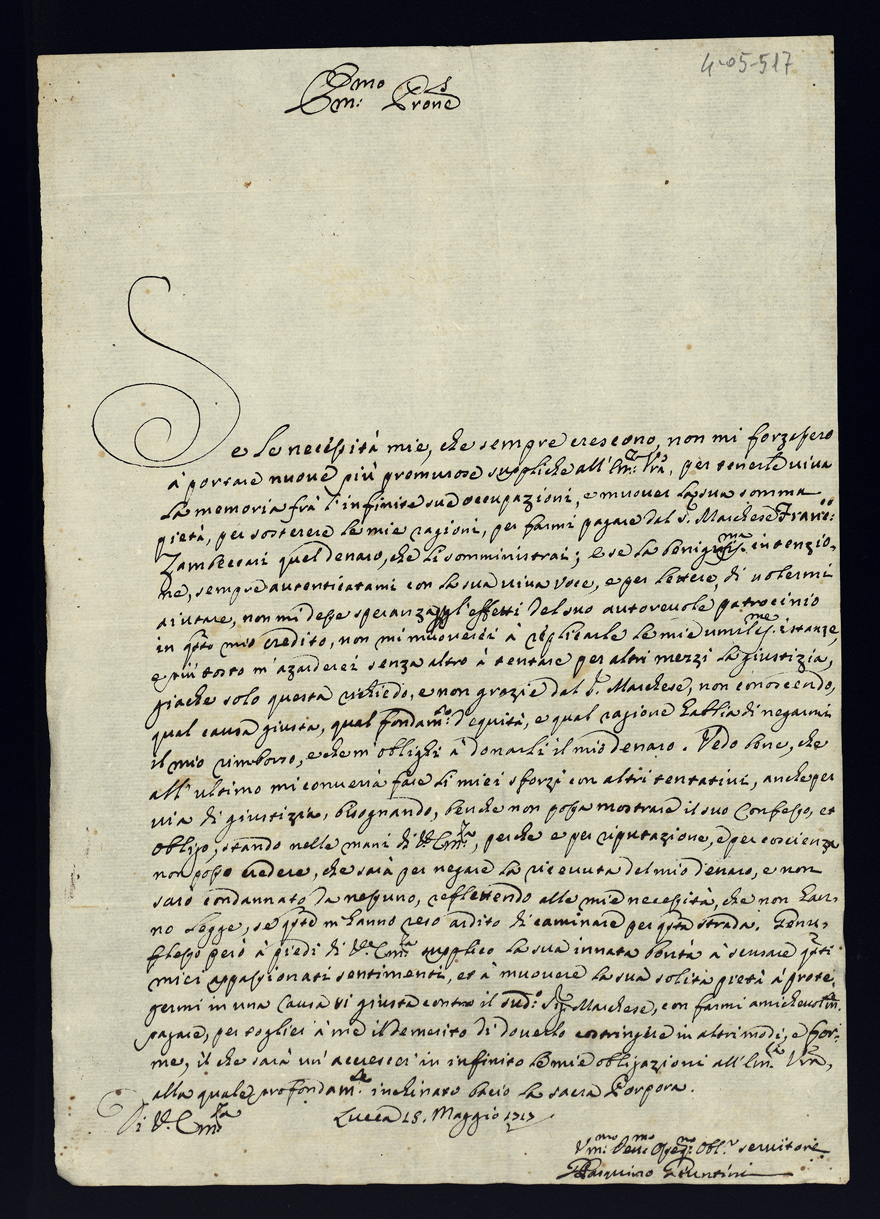 4-05-517
Emo
Em: Prone
Se le necessità mie, che sempre crescono, non mi forzassero
à portare nuove più premurose suppliche all'Em:za Vra, per tenerle viva
la memoria frà l'infinite sue occupazioni, e muover la sua somma
pietà, per sostenere le mie ragioni, per farmi pagare dal Sr. Marchese Franco:
Zambeccari quel denaro, che li somministrai; e se la benignissma: intenzio-
ne, sempre autenticatami con la sua viva voce, e per lettere, di volermi
aiutare, non mi desse speranza gl'effetti del suo autorevole patrocinio
in qsto mio credito, non mi muoverei à replicarle le mie umilisme istanze,
e più tosto m'azarderei senza altro à tentare per altri mezzi la giustizia,
giache solo questa richiedo, e non grazie dal Sr. Marchese, non conoscendo,
qual causa giusta, qual fondamto: d'equità, e qual ragione habbia di negarmi
il mio rimborso, e che m'oblighi à donarli il mio denaro. Vedo bene, che
all'ultimo mi converrà fare li miei sforzi con altri tentativi, anche per
via di giustizia, bisognando, benche non possa mostrare il suo Confesso, et
obligo, stando nelle mani di V. Emza, perche e per riputazione, e per coscienza
non posso credere, che sarà per negare la ricevuta del mio denaro, e non
sarò condannato da nessuno, reflettendo alle mie necessità, che non han-
no legge, se qste m'hanno reso ardito di caminare per qsta strada. Genu-
flesso però à piedi di V. Emza supplico la sua innata bontà à scusare qsti
miei appassionati sentimenti, et à muovere la sua solita pietà à prote-
germi in una causa si giusta contro il sudo: Sr. Marchese, con farmi amichevolm.
pagare, per toglier à me il demerito di doverlo costringere in altri modi, e for-
me, il che sarà un'accrescer in infinito le mie obligazioni all'Em:za Vra,
alla quale profondamte inchinato bacio la sacra Porpora.
Di V. Emza Lucca 18. Maggio 1717
Vmo: Devmo Ossequmo: Obl.r servitore
Pasquino Gruntini